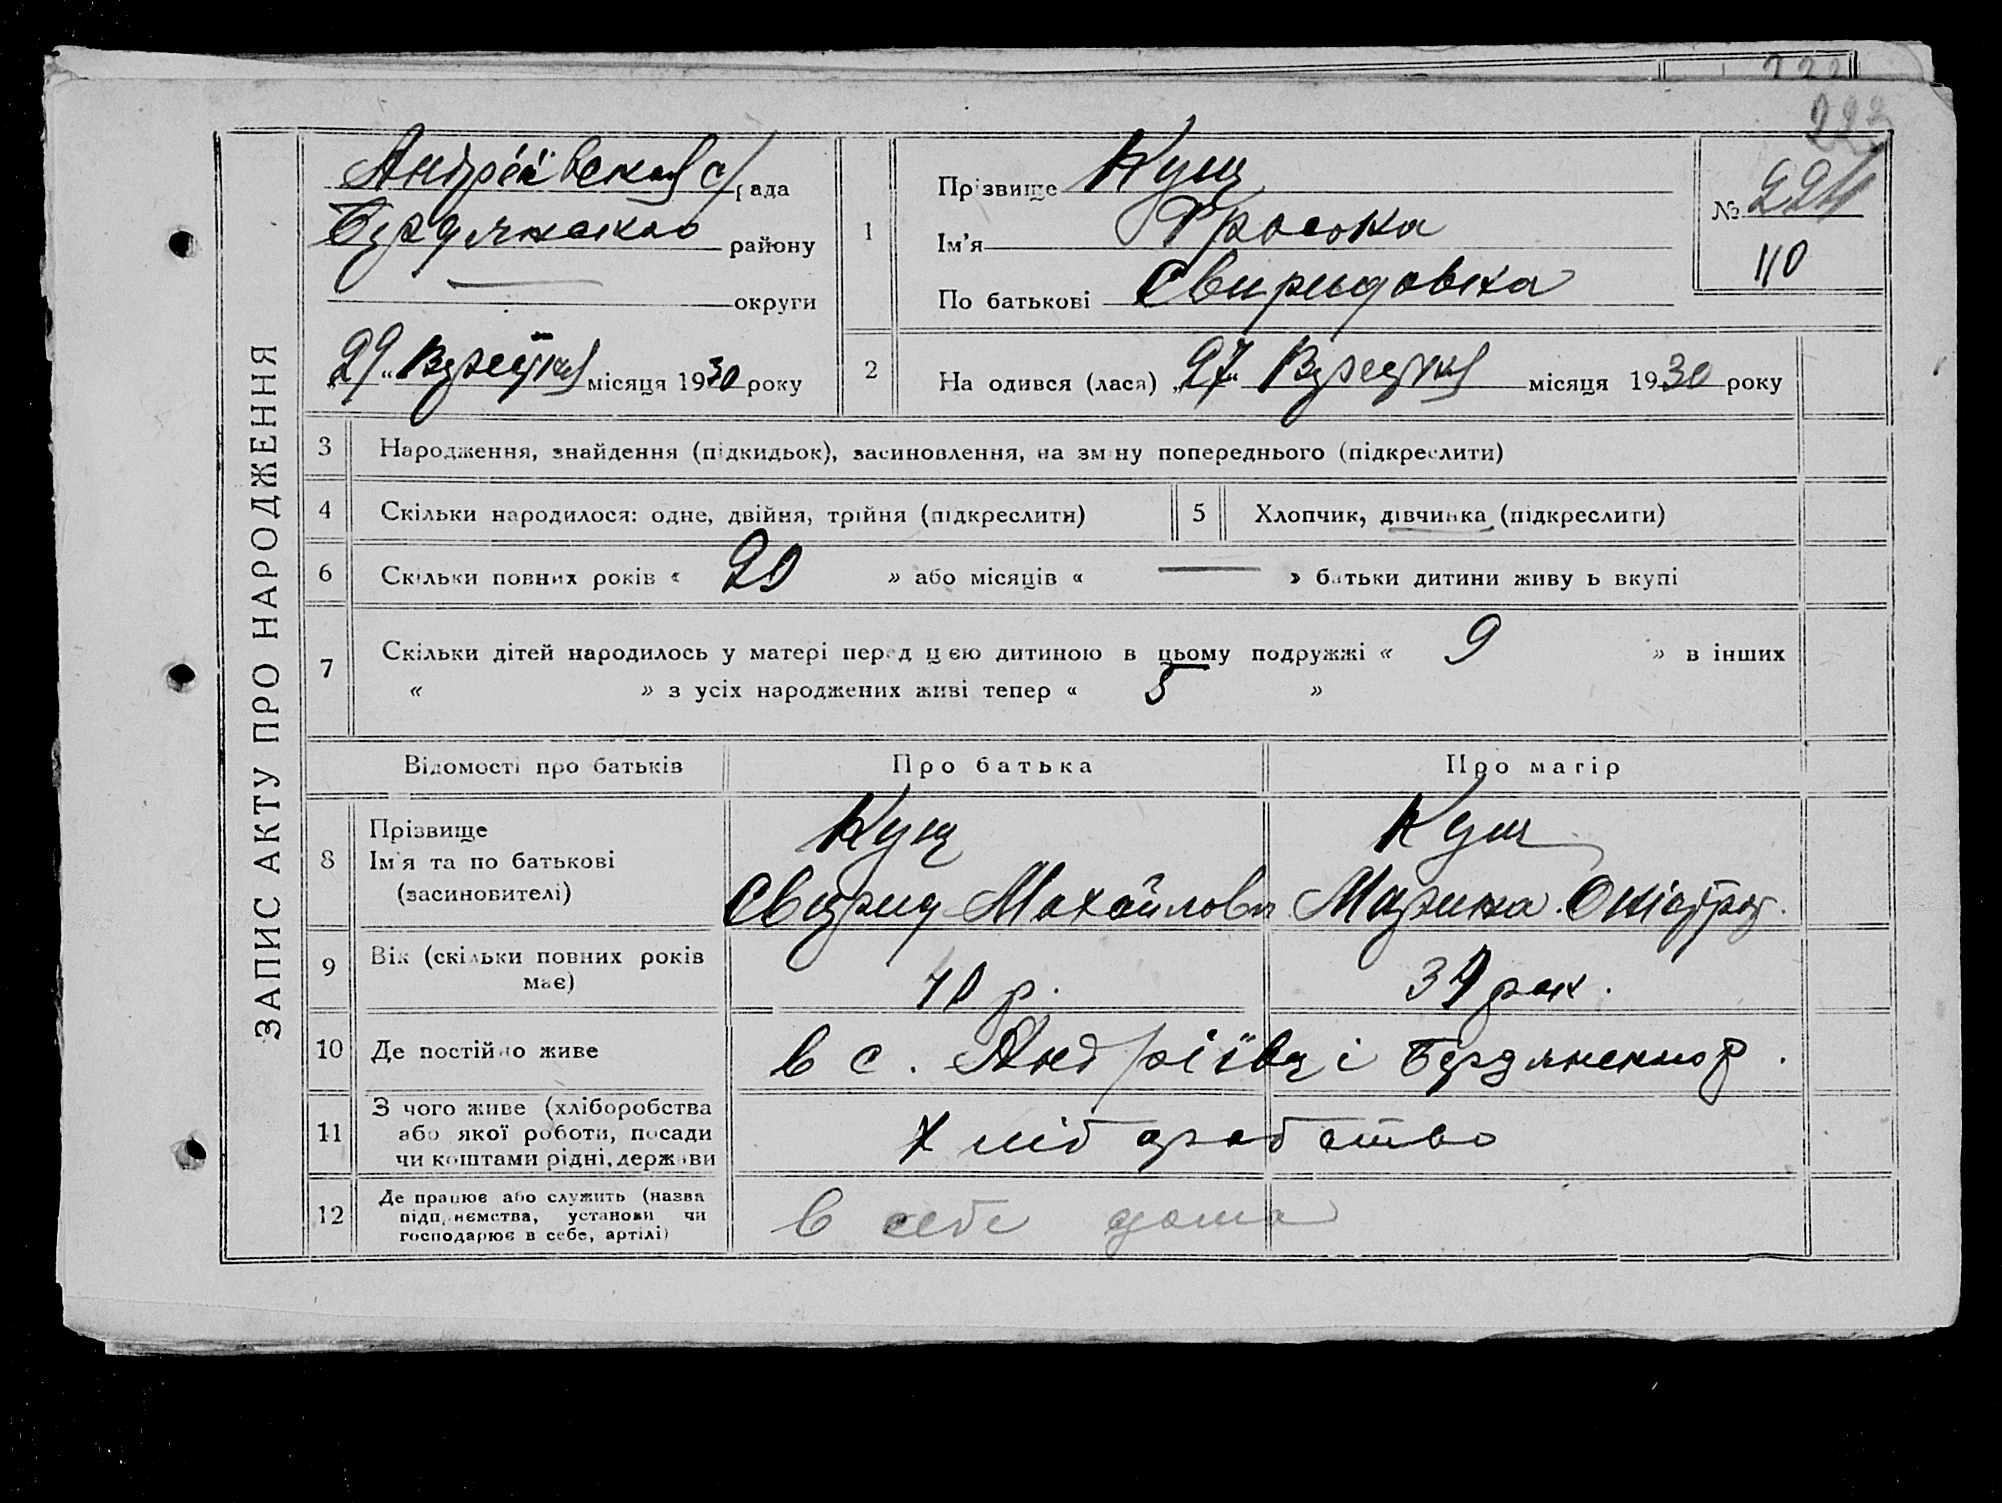 223
ЗАПИС АКТУ ПРО НАРОДЖЕННЯ
Андреївская с/рада
Бердянскаго району
округи
"29" Вересня місяця 1930 року
1
Прізвище Кущ
Ім'я Фроська
По батькові Свиридовна
№ 224
110
2
На одився (лася) "27" Вересня місяця 1930 року
3 Народження, знайдення (підкидьок), засиновлення, на зміну попереднього (підкреслити)
4 Скільки народилося: одне, двійня, трійня (підкреслити) 5 Хлопчик, дівчинка (підкреслити)
6 Скільки повних років « 20 » або місяців « — » батьки дитини живу ь вкупі
7 Скільки дітей народилось у матері перед цією дитиною в цьому подружжі « 9 » в інших
« » з усіх народжених живі тепер « 5 »
Відомості про батьків Про батька Про матір
8 Прізвище
Ім'я та по батькові
(засиновителі)
Кущ
Свирид Махайлов
Кущ
Марина
9 Вік (скільки повних років має)
40 р.
39 рок.
10 Де постійно живе
в с. Андріївці Бердянского р.
11 З чого живе (хліборобства
або якої роботи, посади
чи коштами рідні, держави
Хліборобство
12 Де працює або служить (назва
підприємства, установи чи
господарює в себе, артілі)
в себе дома